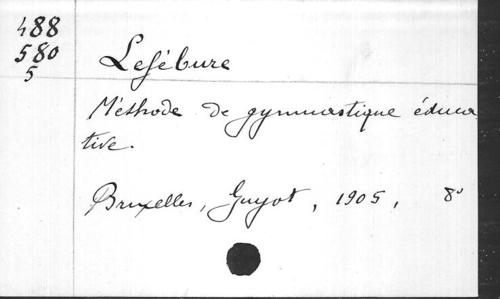 488
580
5
Lefébure
Méthode de gymnastique éduca
tive.
Bruxelles, Guyot, 1905, 8°